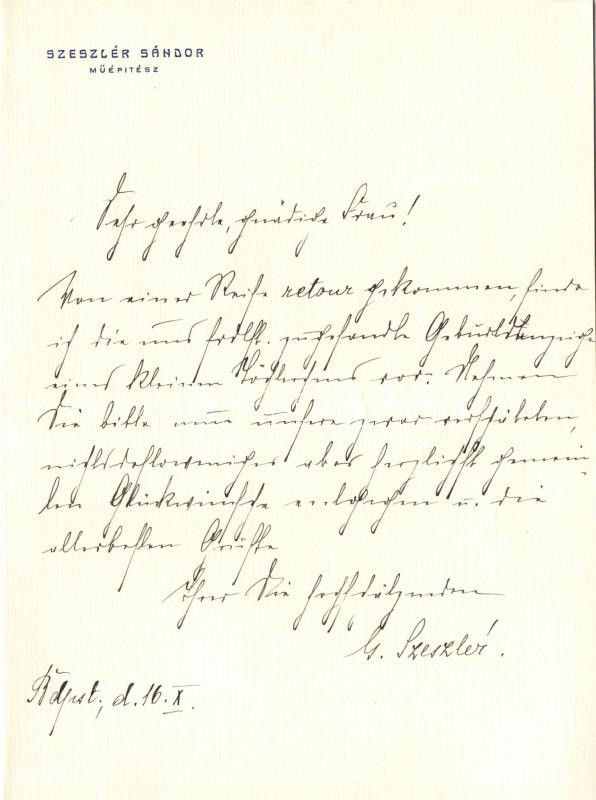 SZESZLÉR SÁNDOR
MŰÉPITÉSZ
Sehr geehrte, gnädige Frau!
Von einer Reise retour gekommen, finde
ich die uns frdlst. zugesandte Geburtsanzeige
eines kleinen Töchterchens vor. Nehmen
Sie bitte nun unsere zwar verspäteten,
nichtsdestoweniger aber herzlichst gemein-
ten Glückwünsche entgegen u. die
allerbesten Grüsse
Ihrer Sie hochschätzenden
G. Szeszlér.
Bdpest, d. 16. X.